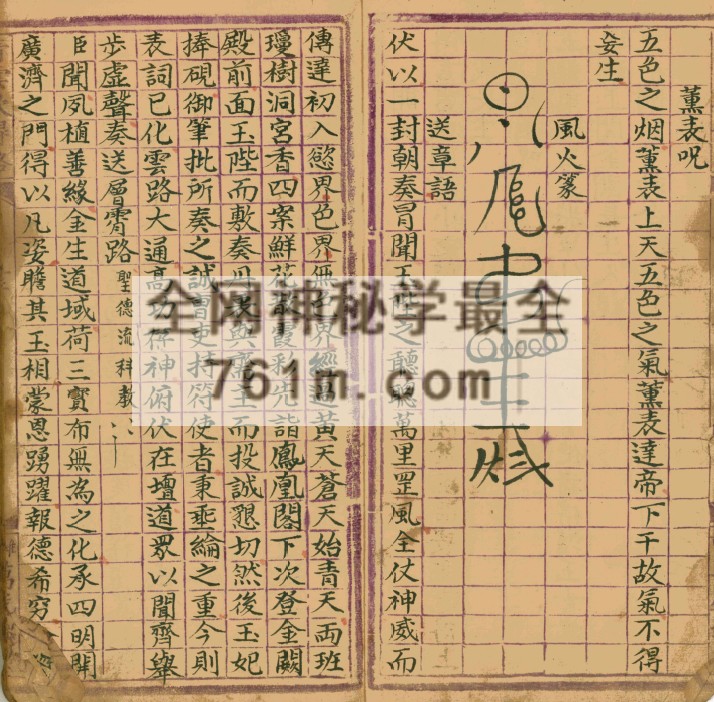 薰表呪
五色之烟薰表上天五色之氣薰表達帝下千故氣不得
妄生
風火篆
送章語
伏以一封朝奏冐聞玉陛之聽聰萬里罡風全仗神威而
傳達初入慾界色界無色界經過黃天蒼天始青天両班
瓊樹洞宮香四案鮮花散霞彩先詣鳳凰閣下次登金闕
殿前面玉陛而敷奏丹
而投誠懇切然後玉妃
捧硯御筆批所奏之誠冐吏持符使者秉乘綸之重今則
表詞已化雲路大通高功
神俯伏在壇道眾以聞齊舉
步虛聲奏送層霄路
聖德流科教
臣聞夙植善緣金生道域荷三寶布無為之化承四明開
廣濟之門得以凡姿瞻其玉相蒙恩踴躍報德希穷
全网神秘学最全
761m.com